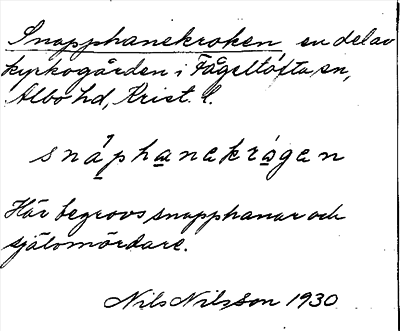 Snapphanekroken, en del av
kyrkogården i Fågeltofta sn,
Albo hd, Krist. l.
snáphanekrógen
Här begrovs snapphanar och
självmördare.
Nils Nilsson 1930